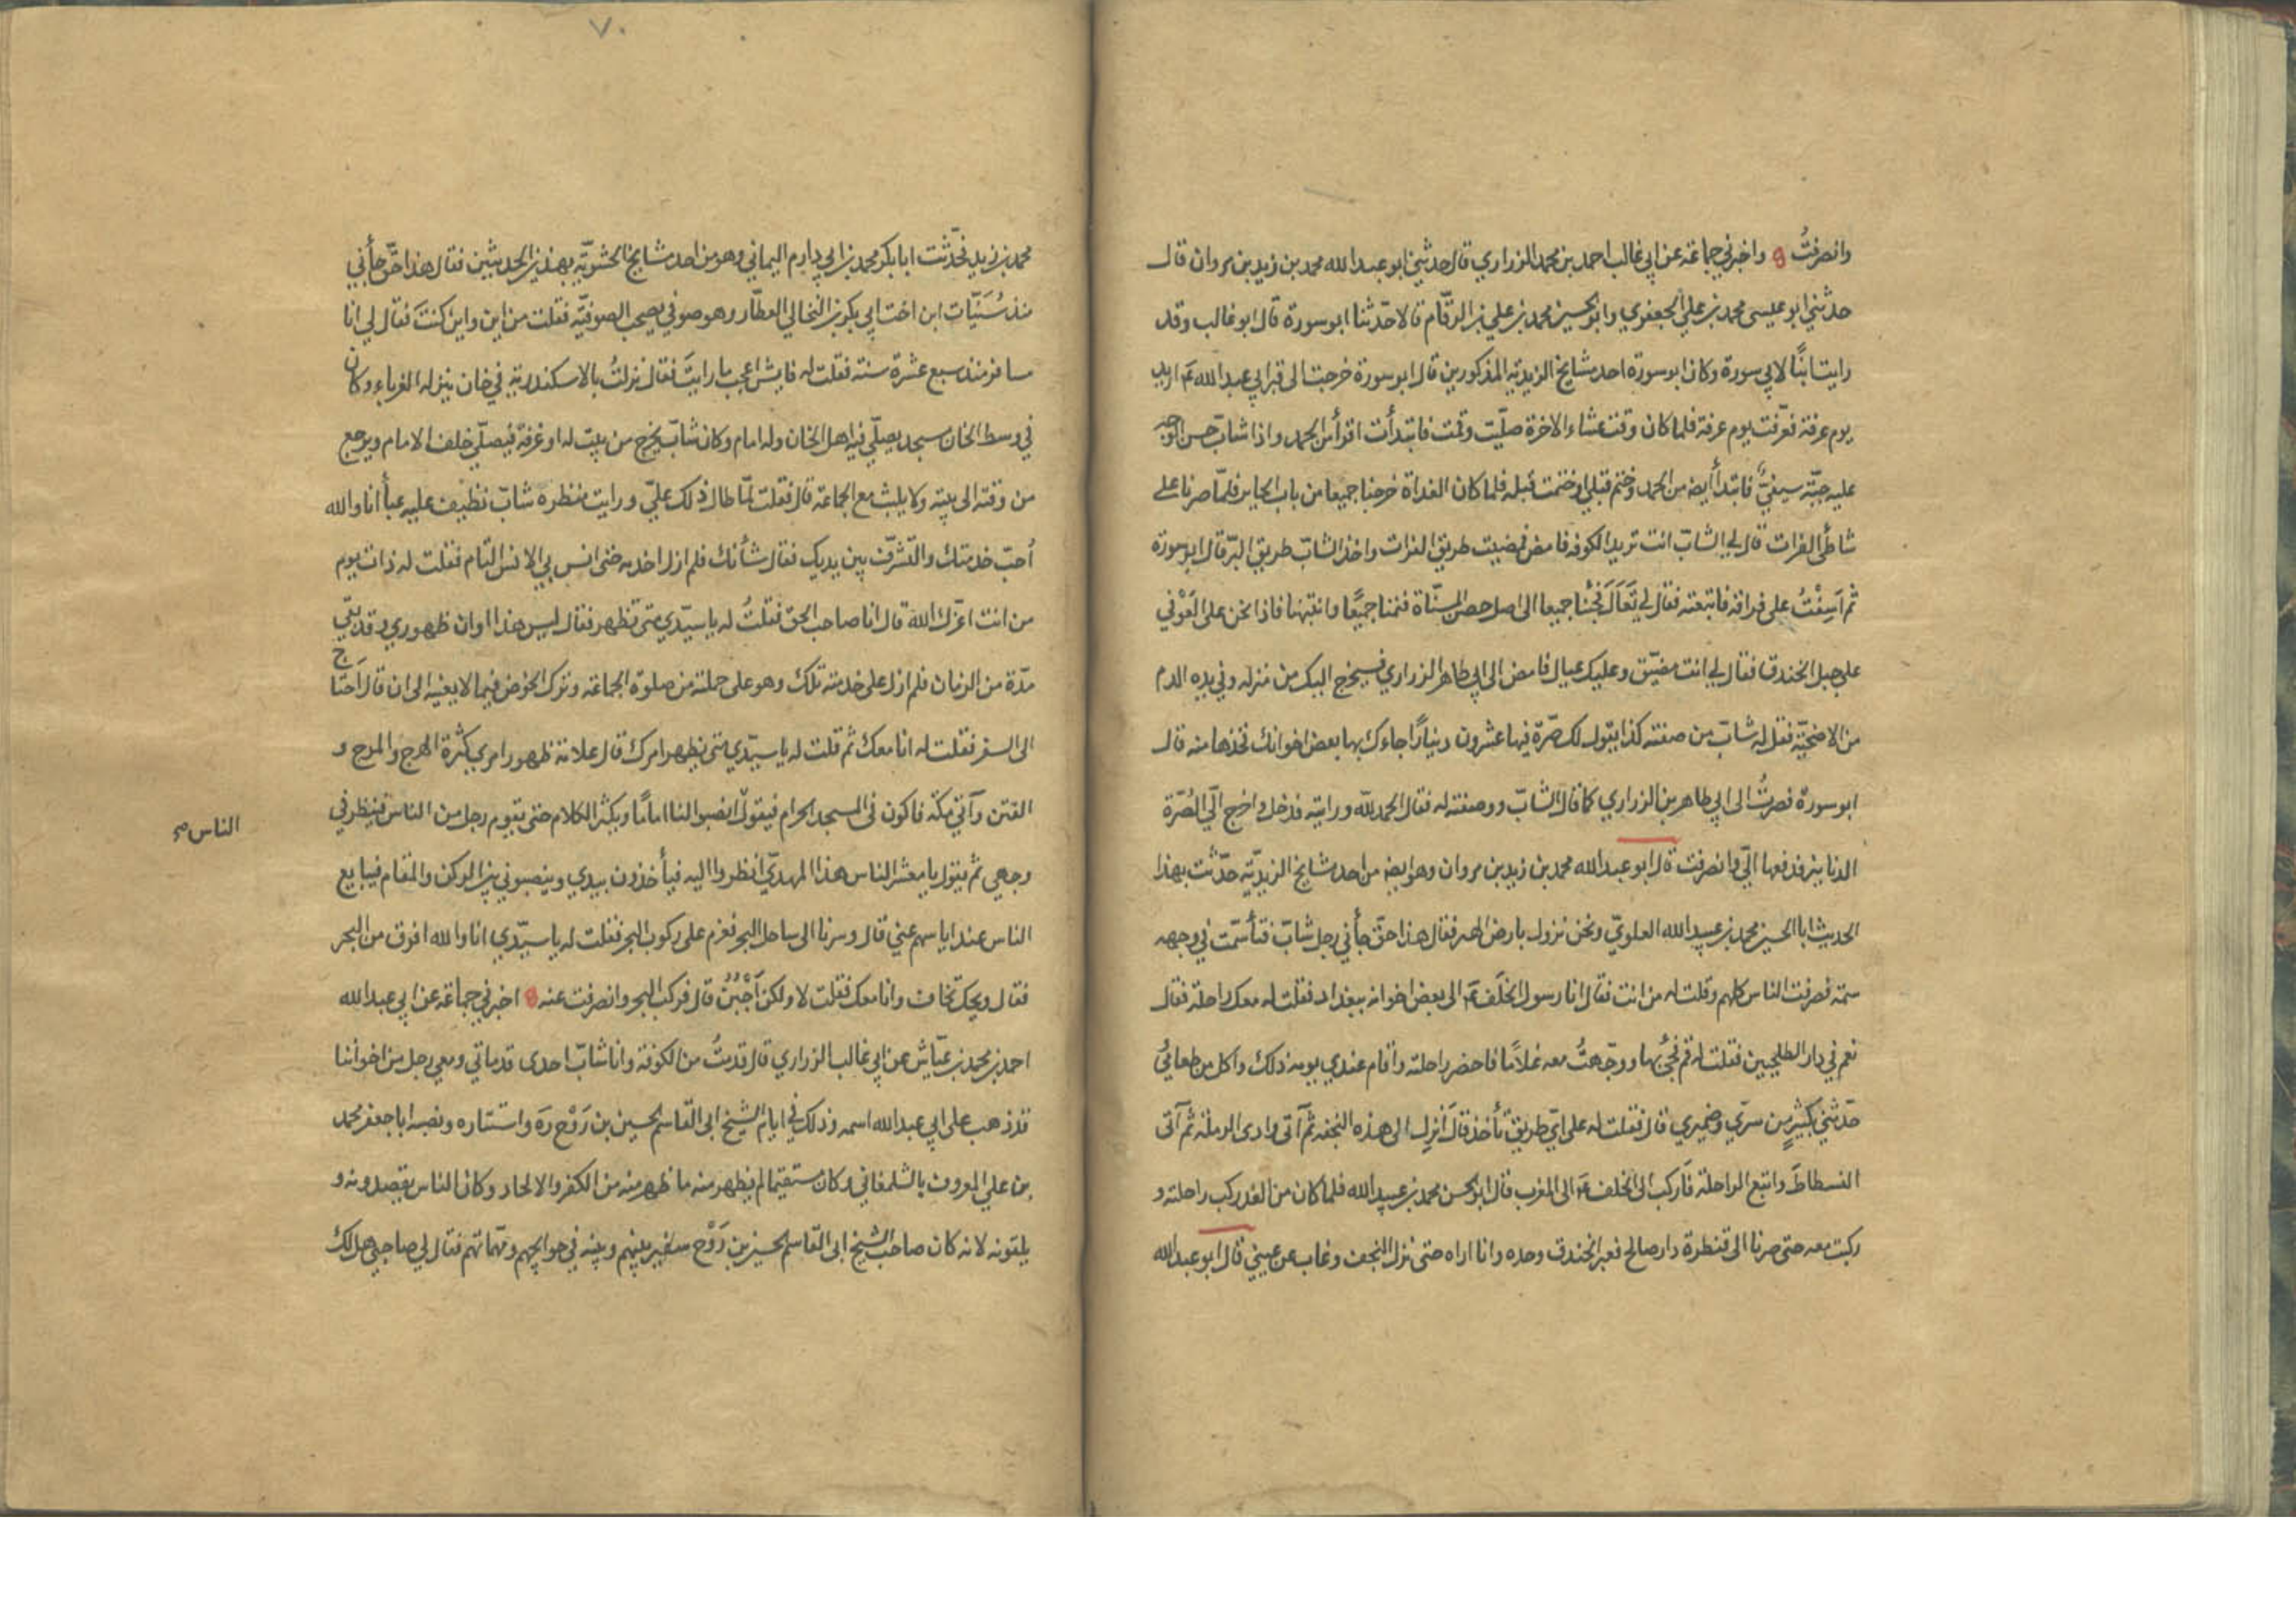 وانصرفتُ واخبرني جماعة عن ابي غالب احمد بن محمد الزراري قال حدثني ابو عبد الله محمد بن زيد بن مروان قال
حدثني ابو عيسى محمد بن علي الجعفري وابو الحسين محمد بن علي بن الرقّام قالا حدّثنا ابو سورة قال ابو غالب وقد
رايت ابنًا لابي سورة وكان ابو سورة احد مشايخ الزيدية المذكورين قال ابو سورة خرجت الى قبر ابي عبد الله ع اريد
يوم عرفة فعرّفت يوم عرفة فلما كان وقت عشاء الاخرة صلّيت وقمت فابتدأت اقرأ من الحمد واذا شابّ حسن الوجه
عليه جبّة سيفيّ فابتدأ أيضا من الحمد وختم قبلي او ختمت قبله فلما كان الغداة خرجنا جميعا من باب الحاير فلمّا صرنا على
شاطئ الفرات قال لي الشابّ انت تريد الكوفه فامض فمضيت طريق الفرات واخذ الشاب طريق البرّ قال ابو سورة
ثم اَسِفْتُ على فراقه فاتبعته فقال لي تَعَالَ فجئنا جميعا الى اصل حصن المسنّاة فنمنا جميعًا وانتبهنا فاذا نحن على العَوْفي
على جبل الخندق فقال لي انت مضيّق وعليك عيال فامض الى ابي طاهر الزراري فسيخرج اليك من منزله وفي يده الدم
من الاضحيّة فقل له شابّ من صفته كذا يقول لك صرّة فيها عشرون دينارًا جاءك بها بعض اخوانك فخذها منه قال
ابو سورة فصرتُ الى ابي طاهر بن الزراري كما قال الشابّ ووصفته له فقال الحمد لله ورايته فدخل واخرج اليّ الصُرّة
الدنانير فدفعها اليّ وانصرفت قال ابو عبد الله محمد بن زيد بن مروان وهو ايضا من احد مشايخ الزيديّه حدّثت بهذا
الحديث ابا الحسين محمد بن عبيد الله العلويّ ونحن نزول بارض الهر فقال هذا حقّ جأني رجل شابّ فتأسّمت في وجهه
سمة فصرفت الناس كلهم وقلت له من انت فقال انا رسول الخلَف ع الى بعض اخوانه ببغداد فقلت له معك راحلة فقال
نعم في دار الطلحيين فقلت له قم فجئ بها ووجّهتُ معه غلامًا فاحضر راحلته واقام عندي يومه ذلك واكل من طعامي
حدّثني بكثيرٍ من سرّي وضميري قال فقلت له على ايّ طريق تأخذ قال اَنزل الى هذه النجفه ثم آتى وادى الرملة ثم آتى
الفسطاطَ واتبع الراحلة فاَركب الى الخلف ع الى المغرب قال ابو الحسن محمد بن عبيد الله فلما كان من الغد ركب راحلته و
ركبت معه حتى صرنا الى قنطرة دار صالح فعبر الخندق وحده وانا اراه حتى نزل النجف وغاب عن عيني قال ابو عبد الله
٧٠
محمد بن زيد فحّدثت ابا بكر محمد بن ابي دارم اليماني وهو من احد مشايخ الحشويّه بهذين الحديثين فقال هذا حقّ جأني
منذ سُنيّات ابن اخت ابي بكر بن النخالي العطّار وهو صوفي يصحب الصوفيّه فقلت من اين واين كنتَ فقال لي انا
مسافر منذ سبع عشرة سنة فقلت له فايش اعجب ما رايتَ فقال نزلتُ بالاسكندرية في خان ينزله الغرباء وكان
في وسط الخان مسجد يصلّي فيه اهل الخان وله امام وكان شابّ يخرج من بيت له او غرفة فيصلّي خلف الامام ويرجع
من وقته الى بيته ولا يلبث مع الجماعة قال فقلت لمّا طال ذلك عليّ ورايت منظره شابّ نظيف عليه عبأ انا والله
اُحبّ خدمتك والتّشرّف بين يديك فقال شأنك فلم ازل اخدمه حتى انس بي الانس التام فقلت له ذات يوم
من انت اعزّك الله قال انا صاحب الحق فقلتُ له يا سيّدي متى تظهر فقال ليس هذا اوان ظهوري وقد بقي
مدّة من الزمان فلم ازل على خدمته تلك وهو على حملته من صلوة الجماعة وترك الخوض فيما لا يعنيه الى ان قال اَحتاج
الى السفر فقلت له انا معك ثم قلت له يا سيّدي متى يظهر امرك قال علامة ظهور امري كثرة الهرج والمرج و
الفتن وآتي مكّة فاكون فى المسجد الحرام فيقول انصبوا لنا امامًا ويكثر الكلام حتى يقوم رجل من الناس فينظر في
الناس صح
وجهي ثم يقول يا معشر الناس هذا المهديّ انظروا اليه فيأخذون بيدي وينصبوني بين الركن والمقام فيبايع
الناس عند اياسهم عني قال وسرنا الى ساحل البحر فعزم على ركوب البحر فقلت له يا سيّدي انا والله افرق من البحر
فقال ويحك تخاف وانا معك فقلت لا ولكن اَجْبُنُ قال فركب البحر وانصرفت عنه اخبرني جماعة عن ابي عبد الله
احمد بن محمد بن عيّاش عن ابي غالب الزراري قال قدمتُ من الكوفة وانا شابّ احدى قدماتي ومعي رجل من اخواننا
قد ذهب على ابي عبد الله اسمه وذلك في ايام الشيخ ابى القاسم الحسين بن رَوْح رَه واستتاره ونصبه ابا جعفر محمد
بن علي المعروف بالشلمغاني وكان مستقيما لم يظهر منه ما ظهر منه من الكفر والالحاد وكان الناس يقصدونه و
يلقونه لانه كان صاحب الشيخ ابى القاسم الحسين بن رَوْح سفير بينهم وبينه في حوايجهم ومهمّاتهم فقال لي صاحبي هل لك